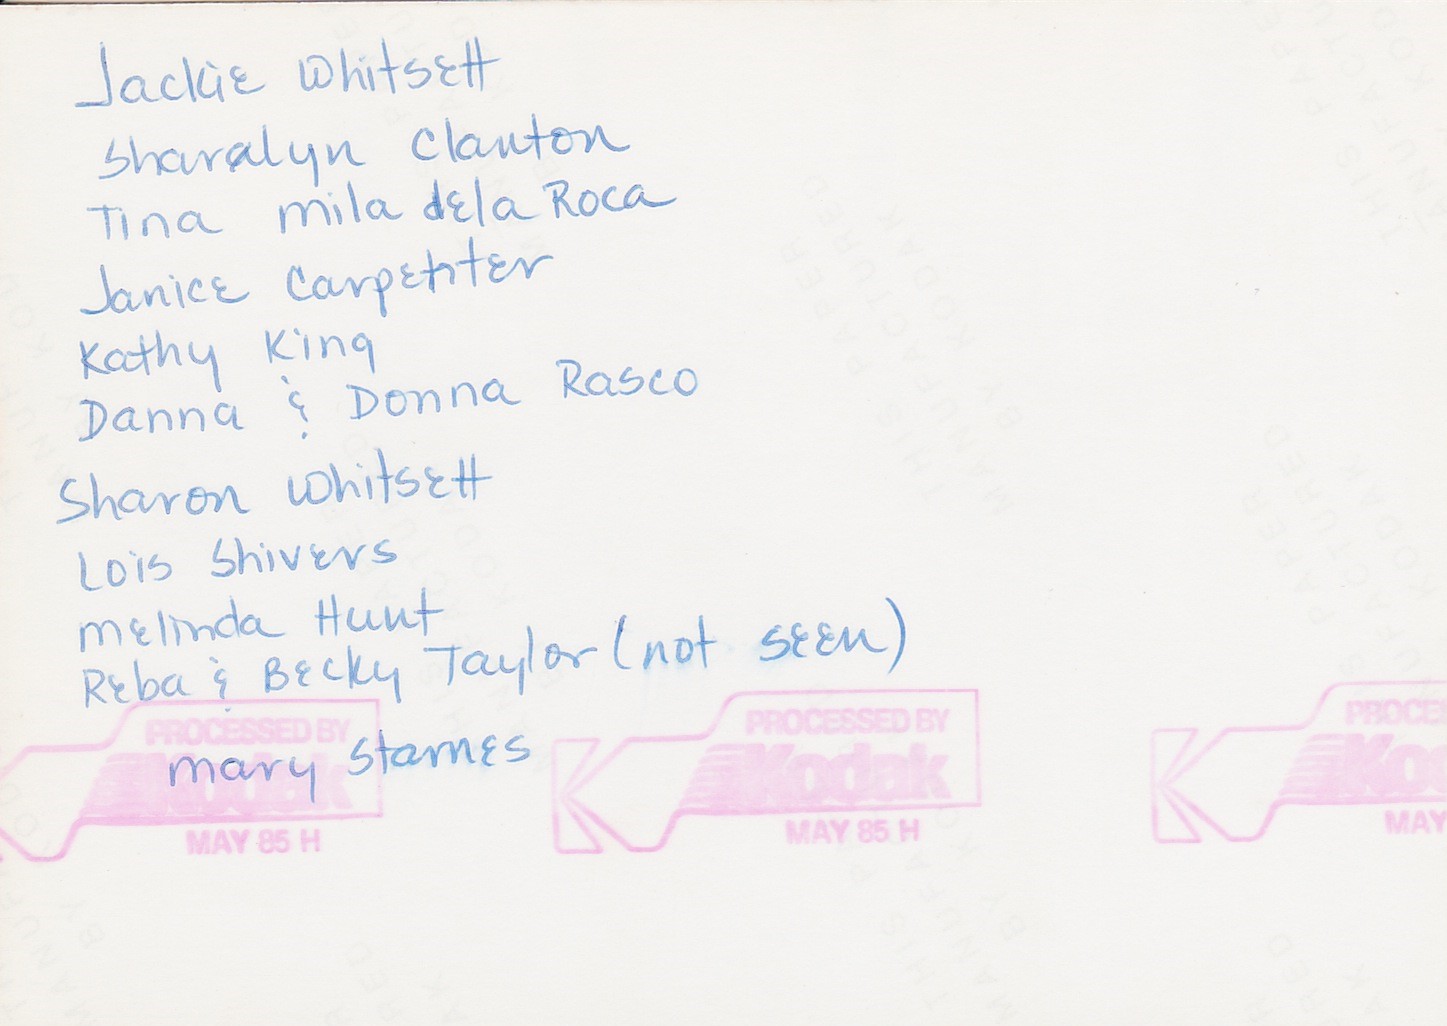 Jackie Whitsett
Sharalyn Clanton
Tina Mila dela Roca
Janice Carpenter
Kathy King
Danna & Donna Rasco
Sharon Whitsett
Lois Shivers
Melinda Hunt
Reba & Becky Taylor (not seen)
Mary Starnes
PROCESSED BY
Kodak
MAY 85 H
PROCESSED BY
Kodak
MAY 85 H
PROCE
Kod
MAY
THIS PAPER
MANUFACTURED
BY KODAK